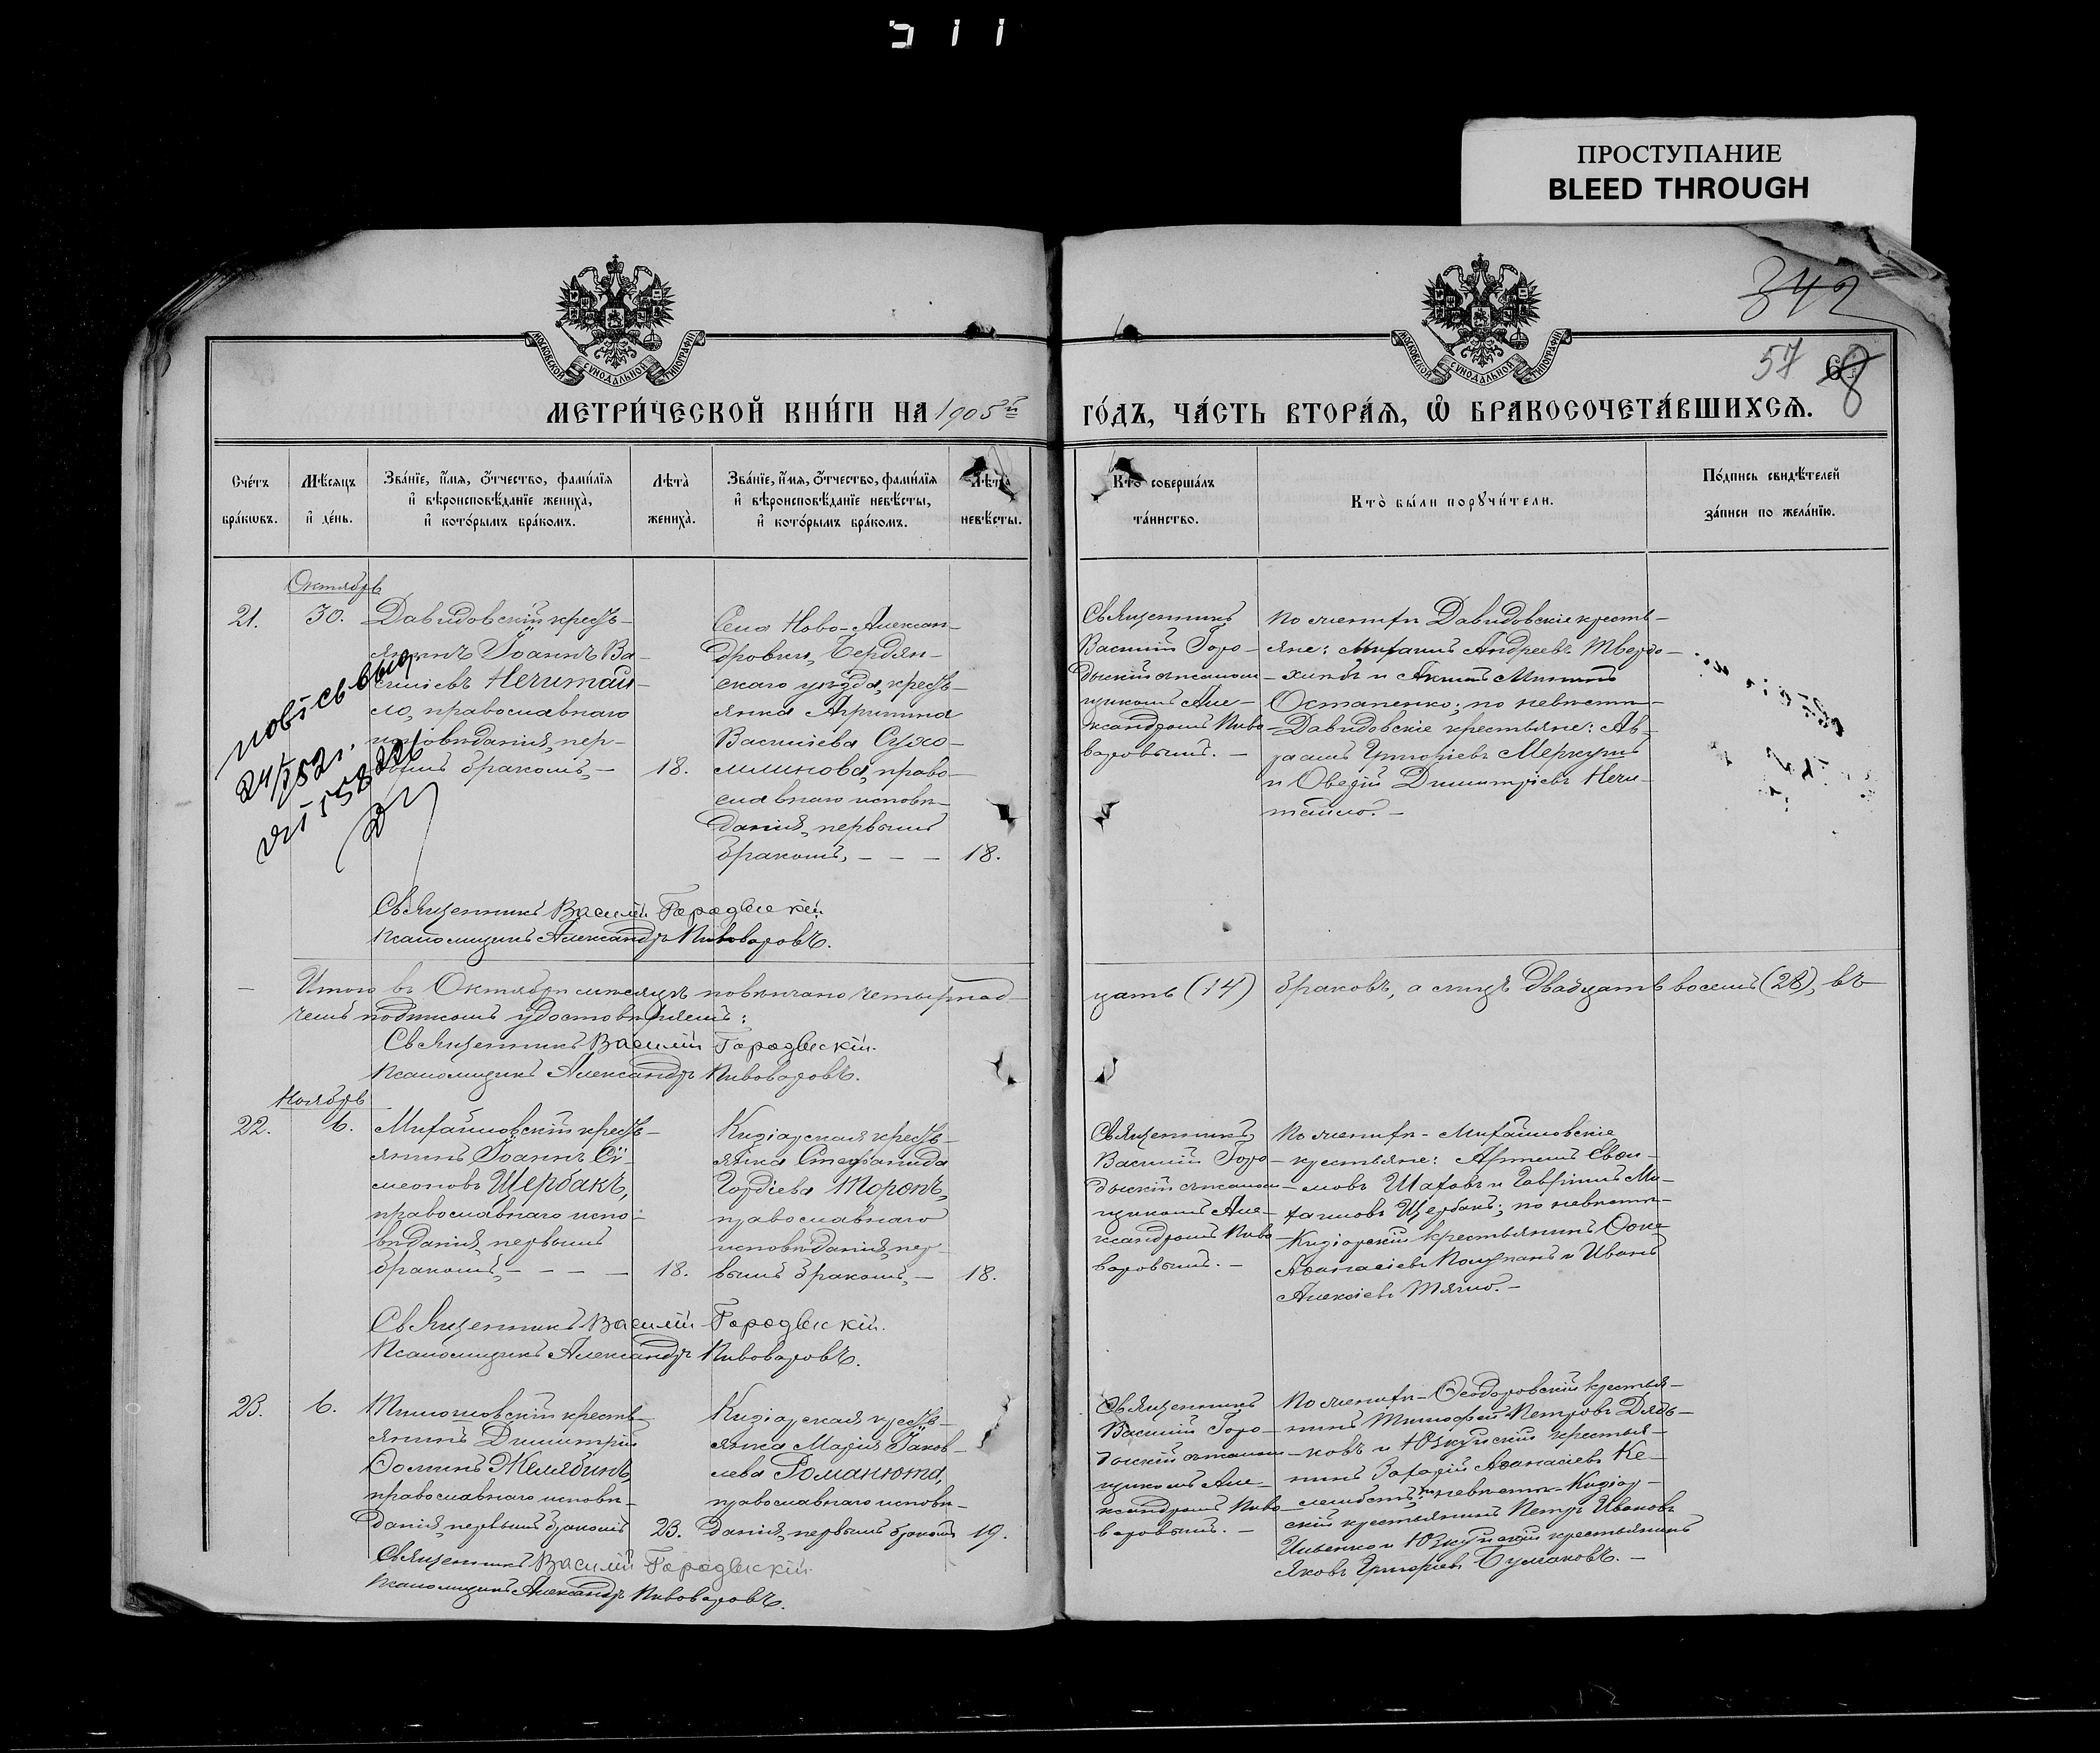 ПРОСТУПАНИЕ
BLEED THROUGH
342
57
МОСКОВСКОЙ СУНОДАЛЬНОЙ ТИПОГРАФІИ
МОСКОВСКОЙ СУНОДАЛЬНОЙ ТИПОГРАФІИ
МЕТРИ́ЧЕСКОЙ КНИ́ГИ НА 1905й
ГО́ДЪ, ЧА́СТЬ ВТОРА́Ѧ, Ѽ БРАКОСОЧЕТА́ВШИХСѦ.
Сче́тъ бра́кѡвъ.
Мѣ́сѧцъ и҆ де́нь.
Зва́нїе, и҆́мѧ, ѻ҆́тчество, фами́лїѧ
и҆ вѣроисповѣ́данїе жениха̀,
и҆ кото́рымъ бра́комъ.
Лѣта̀ жениха̀.
Зва́нїе, и҆́мѧ, ѻ҆́тчество, фами́лїѧ
и҆ вѣроисповѣ́данїе невѣ́сты,
и҆ кото́рымъ бра́комъ.
Лѣта̀ невѣ́сты.
Кто̀ соверша́лъ та́инство.
Кто̀ бы́ли порꙋчи́тели.
По́дпись свидѣ́телей
за́писи по жела́нїю.
Октябрь
21.
30.
Давидовскій кресть-
янинъ Іоаннъ Ва-
силіевъ Нечитай-
ло, православнаго
исповѣданія, пер-
вымъ бракомъ, —
18.
Села Ново-Алексан-
дровки, Бердян-
скаго уѣзда, кресть-
янка Агриппина
Василіева Сухо-
млинова, право-
славнаго исповѣ-
данія, первымъ
бракомъ, — — —
18.
Священникъ
Василій Горо-
дыскій съ псалом-
щикомъ Але-
ксандромъ Пиво-
варовымъ. —
По женихѣ Давидовскіе кресть-
яне: Михаилъ Андреевъ Твердо-
хлѣбъ и
Остапенко; по невѣстѣ —
Давидовскіе крестьяне: Ав-
раамъ Григоріевъ Меркулъ
и Овдій Димитріевъ Нечи-
тайло. —
24/I 52 г.
Священникъ Василій Городыскій.
Псаломщикъ Александръ Пивоваровъ.
— Итого въ Октябрѣ мѣсяцѣ повѣнчано четырнад-
цать (14) браковъ, а лицъ двадцать восемь (28), въ
чемъ подписомъ удостовѣряемъ:
Священникъ Василій Городыскій.
Псаломщикъ Александръ Пивоваровъ.
Ноябрь
22.
6.
Михайловскій кресть-
янинъ Іоаннъ Сѵ-
меоновъ Щербакъ,
православнаго испо-
вѣданія, первымъ
бракомъ, — — — —
18.
Кизіярская кресть-
янка Стефанида
Гордіева Моронъ,
православнаго
исповѣданія, пер-
вымъ бракомъ, —
18.
Священникъ
Василій Горо-
дыскій съ псалом-
щикомъ Але-
ксандромъ Пиво-
варовымъ. —
По женихѣ - Михайловскіе
крестьяне: Артемъ
Шаховъ и Гавріилъ Ми-
хаиловъ Щербакъ; по невѣстѣ —
Кизіярскій крестьянинъ Ѳома
Аѳанасіевъ и Иванъ
Алексіевъ Тягло. —
Священникъ Василій Городыскій.
Псаломщикъ Александръ Пивоваровъ.
23.
6.
Тимошовскій кресть-
янинъ Димитрій
Ѳоминъ Желябинъ,
православнаго исповѣ-
данія, первымъ бракомъ
23.
Кизіярская кресть-
янка Марія Іаков-
лева Романюта,
православнаго исповѣ-
данія, первымъ бракомъ
19.
Священникъ
Василій Горо-
дыскій съ псалом-
щикомъ Але-
ксандромъ Пиво-
варовымъ. —
По женихѣ - Ѳеодоровскій крестья-
нинъ Тимофей Петровъ Дядь-
ковъ и Юзкуйскій крестья-
нинъ Захарій Аѳанасіевъ Ке-
по невѣстѣ - Кизіяр-
скій крестьянинъ Петръ Ивановъ
и Юзкуйскій крестьянинъ
Яковъ Григоріевъ Бумаковъ. —
Священникъ Василій Городыскій
Псаломщикъ Александръ Пивоваровъ.